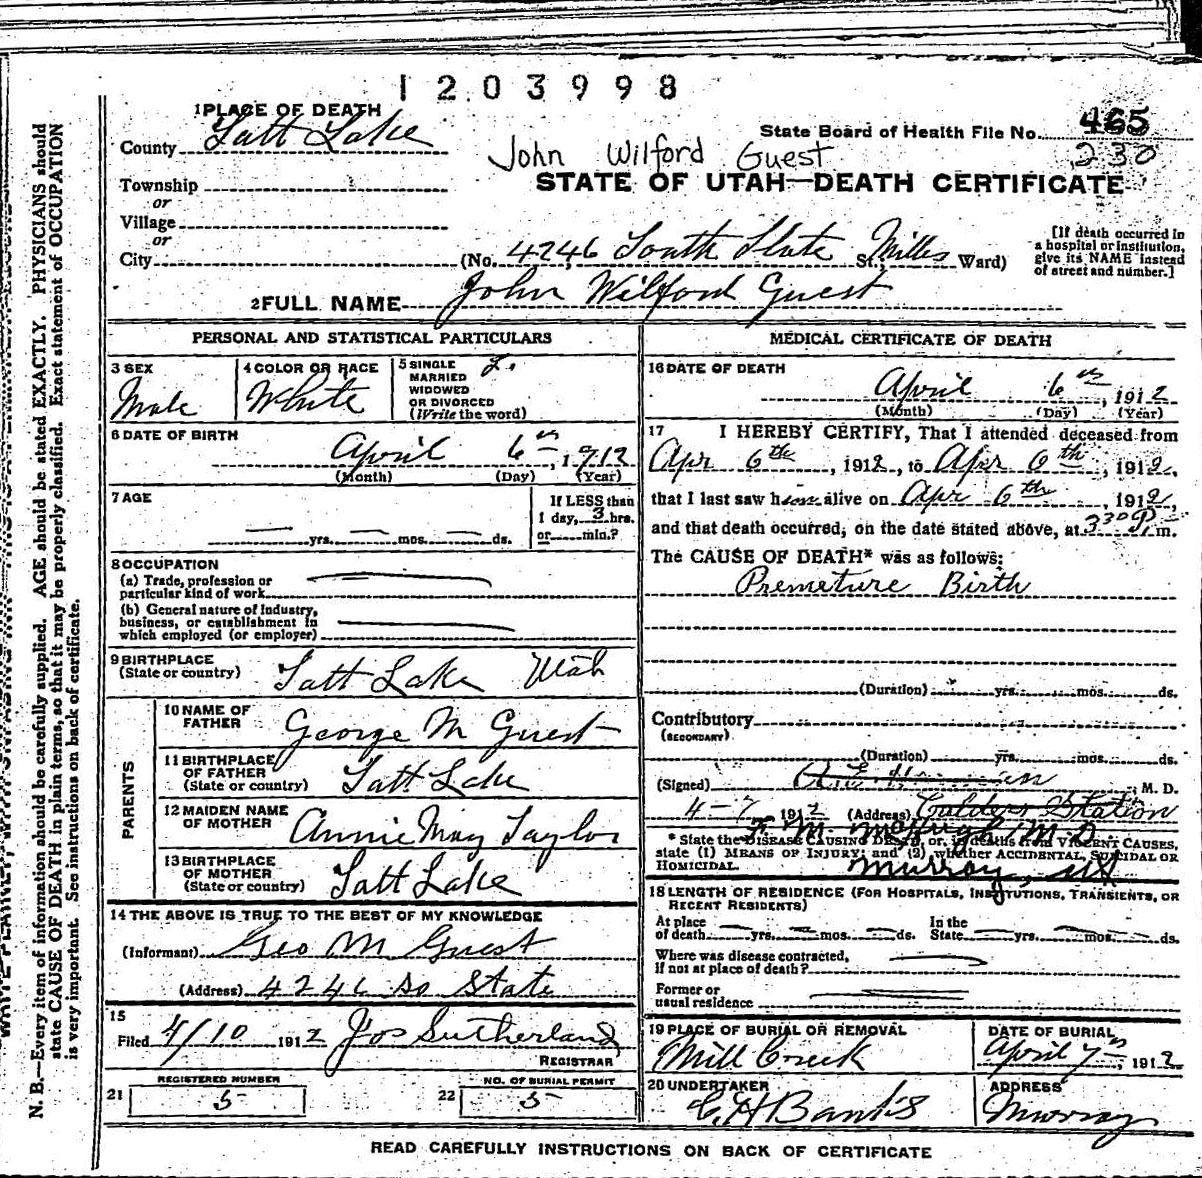 1203998
1 PLACE OF DEATH
County Salt Lake
State Board of Health File No. 465
230
John Wilford Guest
Township
or
STATE OF UTAH—DEATH CERTIFICATE
Village
or
City (No. 4246 South State St., Ward)
[If death occurred in a hospital or institution, give its NAME instead of street and number.]
2 FULL NAME John Wilford Guest
PERSONAL AND STATISTICAL PARTICULARS
3 SEX
Male
4 COLOR OR RACE
White
5 SINGLE
MARRIED
WIDOWED
OR DIVORCED
(Write the word)
S.
6 DATE OF BIRTH
April 6th, 1912
(Month) (Day) (Year)
7 AGE
yrs. mos. ds.
If LESS than
1 day, 3 hrs.
or min.?
8 OCCUPATION
(a) Trade, profession or
particular kind of work
(b) General nature of Industry,
business, or establishment in
which employed (or employer)
9 BIRTHPLACE
(State or country) Salt Lake Utah
PARENTS
10 NAME OF
FATHER George M Guest
11 BIRTHPLACE
OF FATHER
(State or country) Salt Lake
12 MAIDEN NAME
OF MOTHER Annie May Taylor
13 BIRTHPLACE
OF MOTHER
(State or country) Salt Lake
14 THE ABOVE IS TRUE TO THE BEST OF MY KNOWLEDGE
(Informant) Geo M Guest
(Address) 4246 So State
15
Filed 4/10 1912 Jos Sutherland
REGISTRAR
21 REGISTERED NUMBER
5
22 NO. OF BURIAL PERMIT
5
MEDICAL CERTIFICATE OF DEATH
16 DATE OF DEATH
April 6th, 1912
(Month) (Day) (Year)
17 I HEREBY CERTIFY, That I attended deceased from
Apr 6th, 1912, to Apr 6th, 1912,
that I last saw him alive on Apr 6th, 1912,
and that death occurred, on the date stated above, at 3 30 P. m.
The CAUSE OF DEATH* was as follows:
Premeture Birth
(Duration) yrs. mos. ds.
Contributory
(SECONDARY)
(Duration) yrs. mos. ds.
(Signed) M. D.
4-7 1912 (Address) Calders Station
M. D.
Murray, Ut
* State the DISEASE CAUSING DEATH, or, in deaths from VIOLENT CAUSES,
state (1) MEANS OF INJURY; and (2) whether ACCIDENTAL, SUICIDAL OR
HOMICIDAL.
18 LENGTH OF RESIDENCE (FOR HOSPITALS, INSTITUTIONS, TRANSIENTS, OR
RECENT RESIDENTS)
At place
of death yrs. mos. ds.
In the
State yrs. mos. ds.
Where was disease contracted,
if not at place of death?
Former or
usual residence
19 PLACE OF BURIAL OR REMOVAL
Mill Creek
DATE OF BURIAL
April 7th, 1912
20 UNDERTAKER
ADDRESS
Murray
READ CAREFULLY INSTRUCTIONS ON BACK OF CERTIFICATE
N. B.—Every item of information should be carefully supplied. AGE should be stated EXACTLY. PHYSICIANS should
state CAUSE OF DEATH in plain terms, so that it may be properly classified. Exact statement of OCCUPATION
is very important. See instructions on back of certificate.